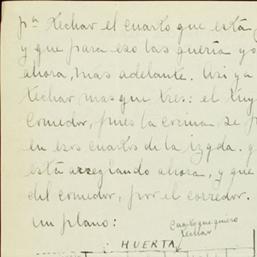 pa techar el cuarto que está
y que para eso las quería yo
ahora, mas adelante. Asi ya
techar mas que tres: el
comedor, pues la cocina se p
en esos cuartos de la izqda. q
está arreglando ahora, y que
del comedor, por el corredor.
un plano:
Cuarto que quiero
techar
HUERTA